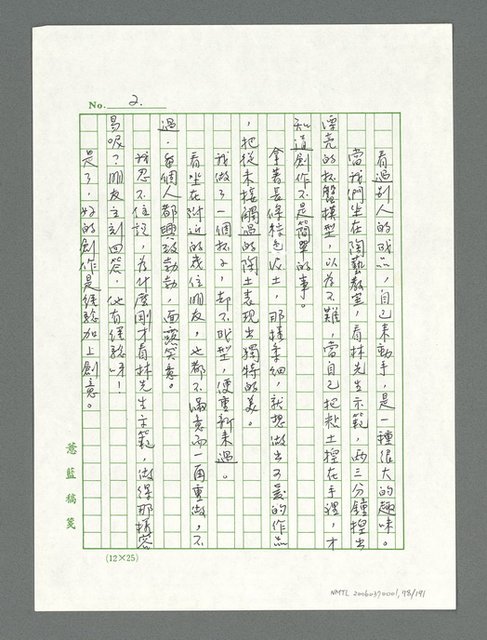 No. 2.
看過別人的成品，自己來動手，是一種很大的趣味。
當我們坐在陶藝教室，看林先生示範，兩三分鐘捏出
漂亮的杯盤模型，以為不難，當自己把黏土捏在手裡，才
知道創作不是簡單的事。
拿著長條棕色泥土，那樣柔細，就想做出可愛的作品
，把從未接觸過的陶土表現出獨特的美。
我做了一個杯子，却不成型，便重新來過。
看坐在附近的幾位朋友，也都不滿意而一再重做，不
過，每個人都興致勃勃，面露笑意。
我忍不住說，為什麼剛才看林先生示範，做得那樣容
易呢？朋友立刻回答，他有經驗呀！
是了，好的創作是經驗加上創意。
意藍稿箋
(12×25)
NMTL 20060370001, 98/191